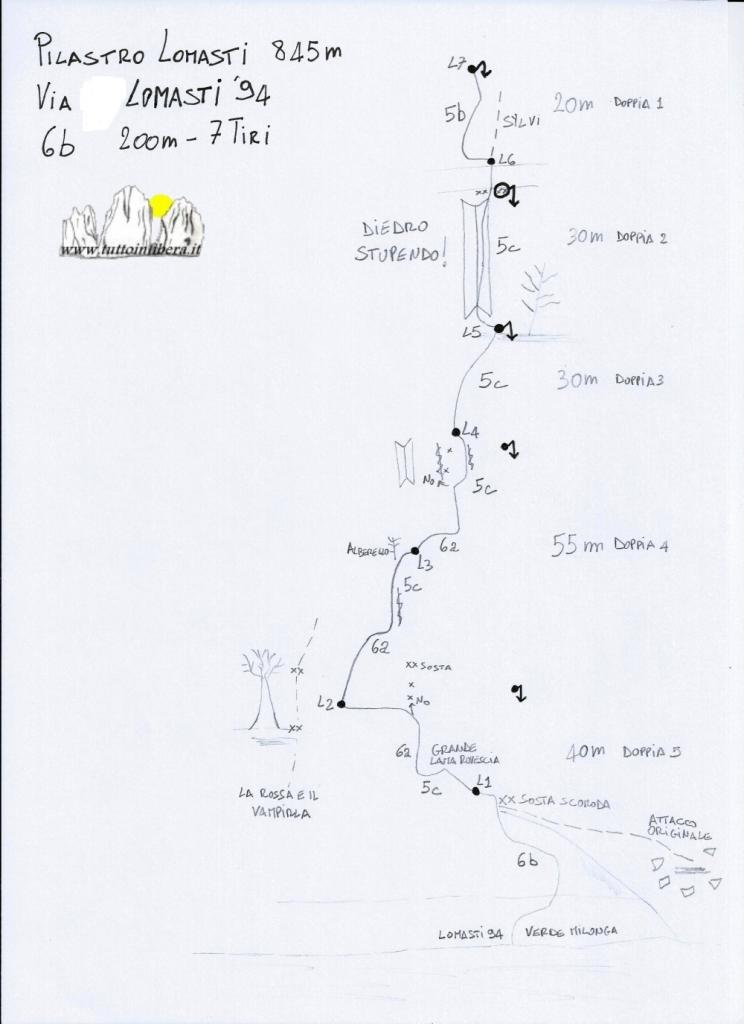 PILASTRO LOMASTI 845m
VIA LOMASTI '94
6b 200m - 7 TIRI
www.tuttoinlibera.it
L7
5b
SYLVI
20m DOPPIA 1
L6
xx
DIEDRO
STUPENDO!
5c
30m DOPPIA 2
L5
5c
30m DOPPIA3
L4
x
x
NO
5c
ALBERELLO
6a
L3
55m DOPPIA 4
5c
6a
xx SOSTA
x
x
NO
xx
L2
xx
6a
GRANDE
LAMA ROVESCIA
40m DOPPIA 5
5c
L1
LA ROSSA E IL
VAMPIRLA
XX SOSTA SCOMODA
ATTACCO
ORIGINALE
6b
LOMASTI 94
VERDE MILONGA